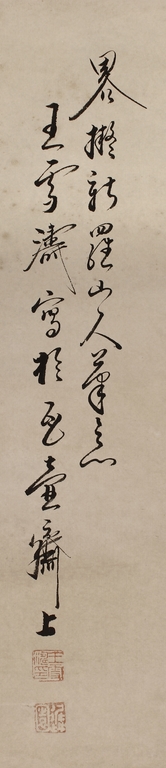 畧擬新羅山人筆意
王雪濤寫於瓦壺齋上